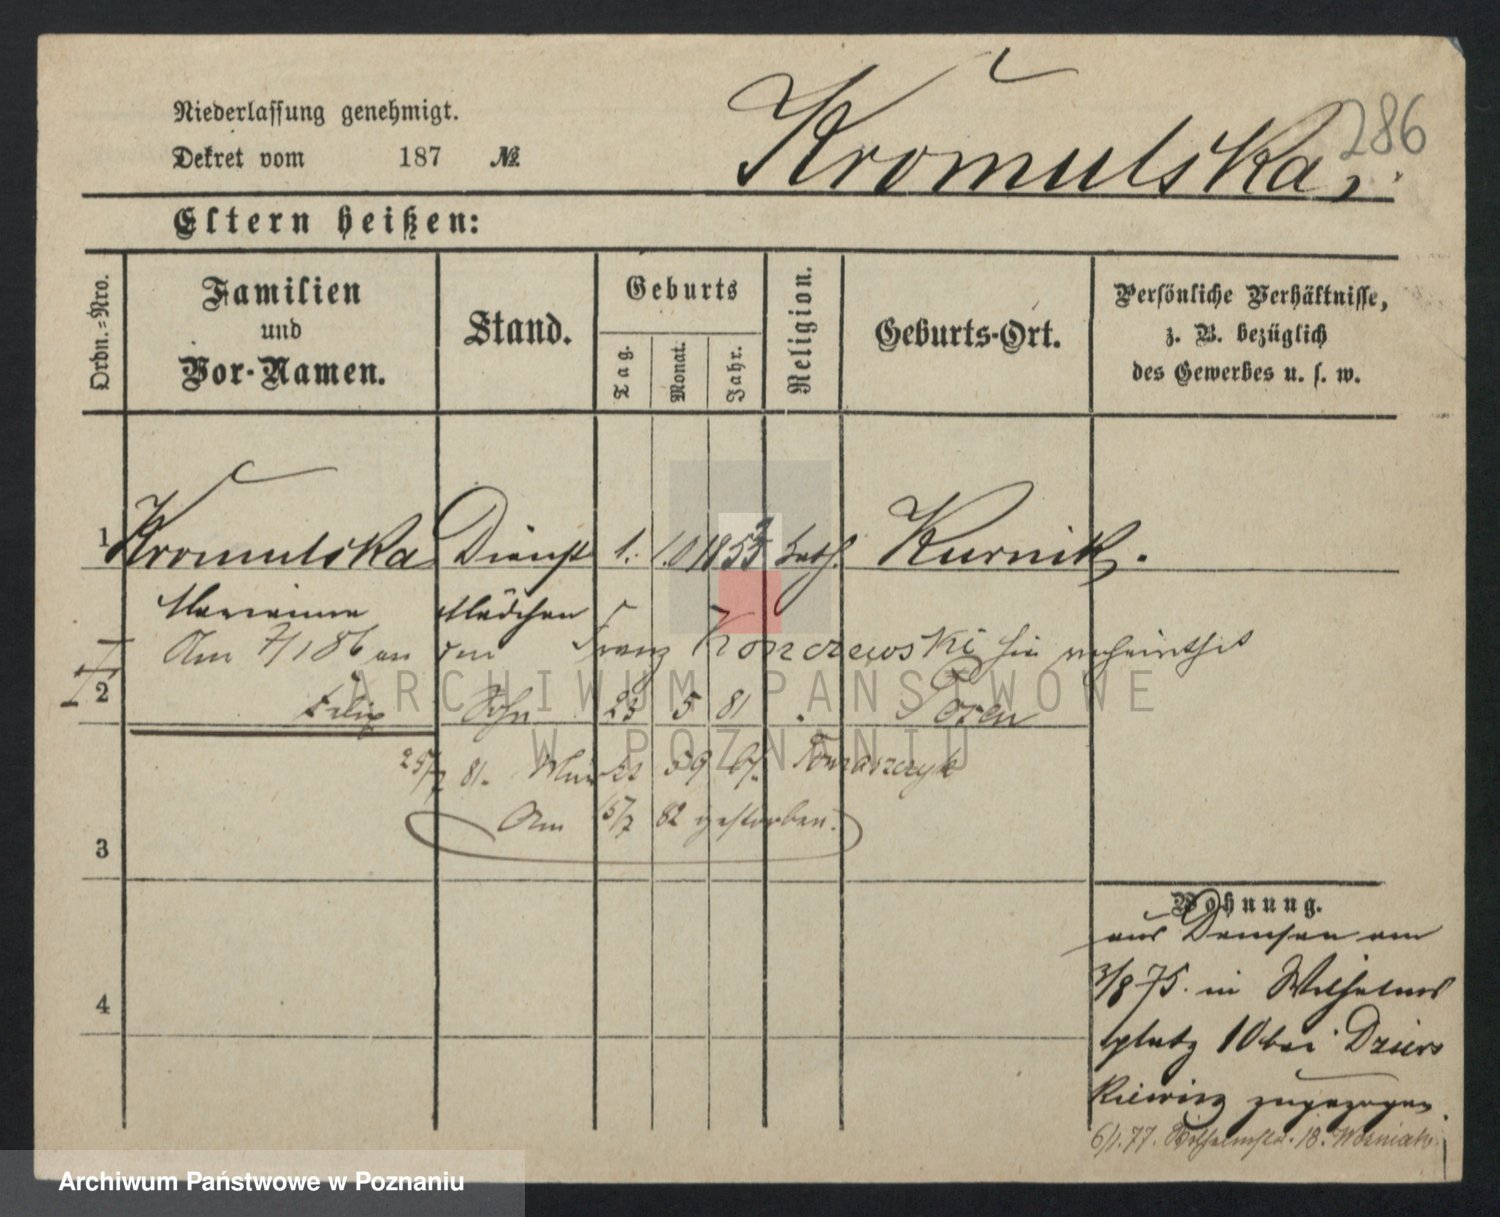 286
Niederlassung genehmigt.
Dekret vom 187 №
Kromulska,
Eltern heißen:
Ordn.-Nro.
Familien und Vor-Namen.
Stand.
Geburts
Tag.
Monat.
Jahr.
Religion.
Geburts-Ort.
Persönliche Verhältnisse,
z. B. bezüglich
des Gewerbes u. s. w.
1 Kromulska Dienst 1. 10 1853 kath. Kurnik.
Marianna Mädchen
Am 7/1 86 an den Franz Konczewski hie verheirathet
2 Felix Sohn 23 5 81 Posen
25/7 81. 59 b/. Tomaszczyk
Am 15/7 82 gestorben.
3
4
Wohnung.
aus Demsen am
3/8 75. in Wilhelms
platz 10 bei Dziers
kiewicz zugezogen.
6/1. 77. Wilhelmstr. 18. Wozniak.
ARCHIWUM PAŃSTWOWE
W POZNANIU
Archiwum Państwowe w Poznaniu